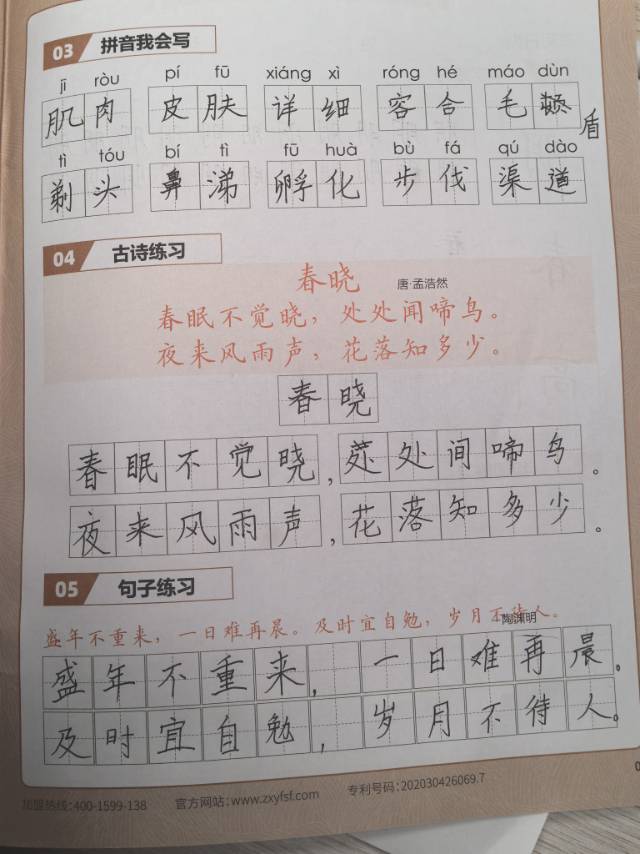 03 拼音我会写
jī ròu pí fū xiáng xì róng hé máo dùn
肌肉 皮肤 详细 容合 毛 盾
tì tóu bí tì fū huà bù fá qú dào
剃头 鼻涕 孵化 步伐 渠道
04 古诗练习
春晓 唐·孟浩然
春眠不觉晓，处处闻啼鸟。
夜来风雨声，花落知多少。
春晓
春眠不觉晓，处处间啼鸟。
夜来风雨声，花落知多少。
05 句子练习
盛年不重来，一日难再晨。及时宜自勉，岁月不待人。 陶渊明
盛年不重来，一日难再晨。
及时宜自勉，岁月不待人。
加盟热线：400-1599-138 官方网站：www.zxyfsf.com 专利号码：202030426069.7